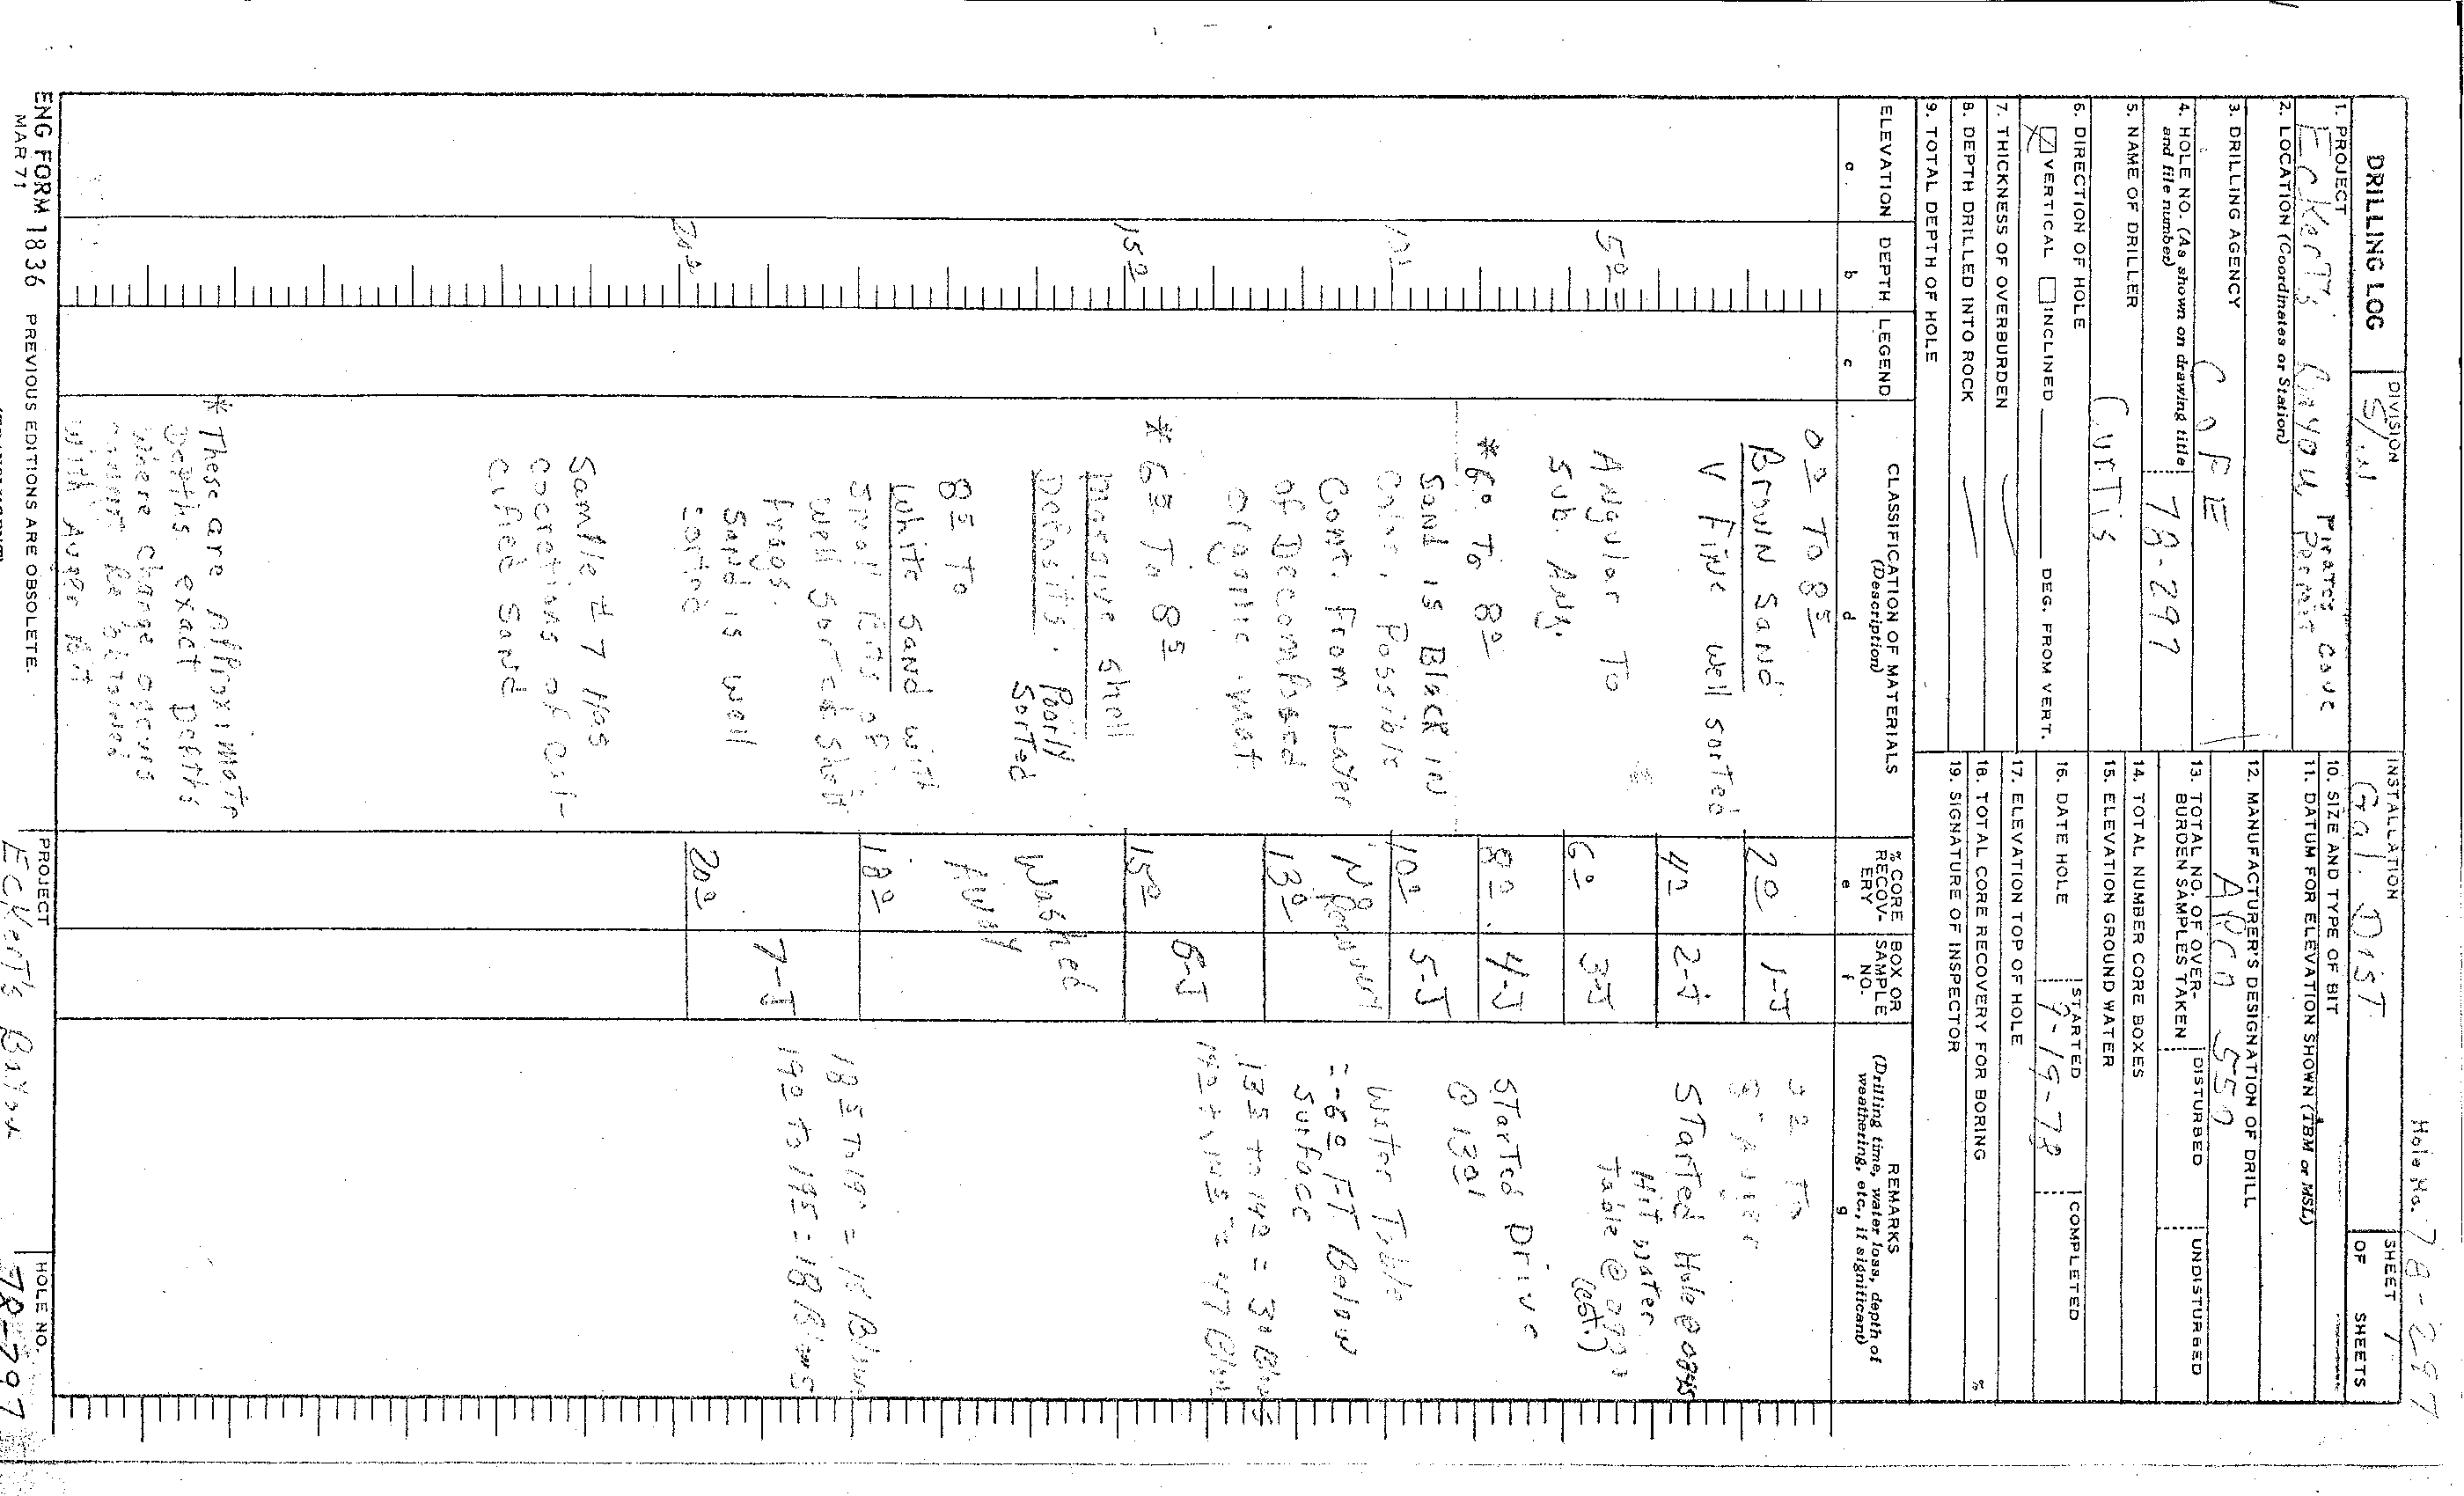 Hole No. 78-297
DRILLING LOG
DIVISION
INSTALLATION
Gal. Dist
SHEET 1
OF SHEETS
1. PROJECT
Eckert's Bayou Pirates Cove
10. SIZE AND TYPE OF BIT
2. LOCATION (Coordinates or Station)
11. DATUM FOR ELEVATION SHOWN (TBM or MSL)
3. DRILLING AGENCY
C of E
12. MANUFACTURER'S DESIGNATION OF DRILL
4. HOLE NO. (As shown on drawing title
and file number)
78-297
13. TOTAL NO. OF OVER-
BURDEN SAMPLES TAKEN
DISTURBED
UNDISTURBED
5. NAME OF DRILLER
Curtis
14. TOTAL NUMBER CORE BOXES
15. ELEVATION GROUND WATER
6. DIRECTION OF HOLE
VERTICAL INCLINED DEG. FROM VERT.
16. DATE HOLE
STARTED
9-19-78
COMPLETED
7. THICKNESS OF OVERBURDEN
17. ELEVATION TOP OF HOLE
8. DEPTH DRILLED INTO ROCK
18. TOTAL CORE RECOVERY FOR BORING %
9. TOTAL DEPTH OF HOLE
19. SIGNATURE OF INSPECTOR
ELEVATION
a
DEPTH
b
LEGEND
c
CLASSIFICATION OF MATERIALS
(Description)
d
% CORE
RECOV-
ERY
e
BOX OR
SAMPLE
NO.
f
REMARKS
(Drilling time, water loss, depth of
weathering, etc., if significant)
g
0.0 To 8.5
Brown Sand
V Fine well sorted
Angular To
Sub. Ang.
* 6.0 To 8.0
Sand is Black in
Color, Possible
Cont. From Layer
of Decomposed
organic mat.
* 6.5 To 8.5
Massive shell
Deposits. Poorly
Sorted
8.5 To
White Sand with
small bits of
well sorted shell
frags.
Sand is well
sorted
Sample # 7 Has
concretions of cal-
cified sand
* These are Approximate
Depths exact Depths
where change occurs
cannot be obtained
with Auger bit
5.0
15.0
20.0
2.0
1-J
4.0
2-J
6.0
3-J
8.0
4-J
10.0
5-J
13.0
15.0
6-J
Washed
Away
18.0
20.0
7-J
Started Hole @ 0845
Hit water
Table @ 0900
(est.)
Started Drive
@ 1301
Water Table
= -6.0 FT Below
Surface
ENG FORM 1836
MAR 71
PREVIOUS EDITIONS ARE OBSOLETE.
PROJECT
Eckert's Bayou
HOLE NO.
78-297